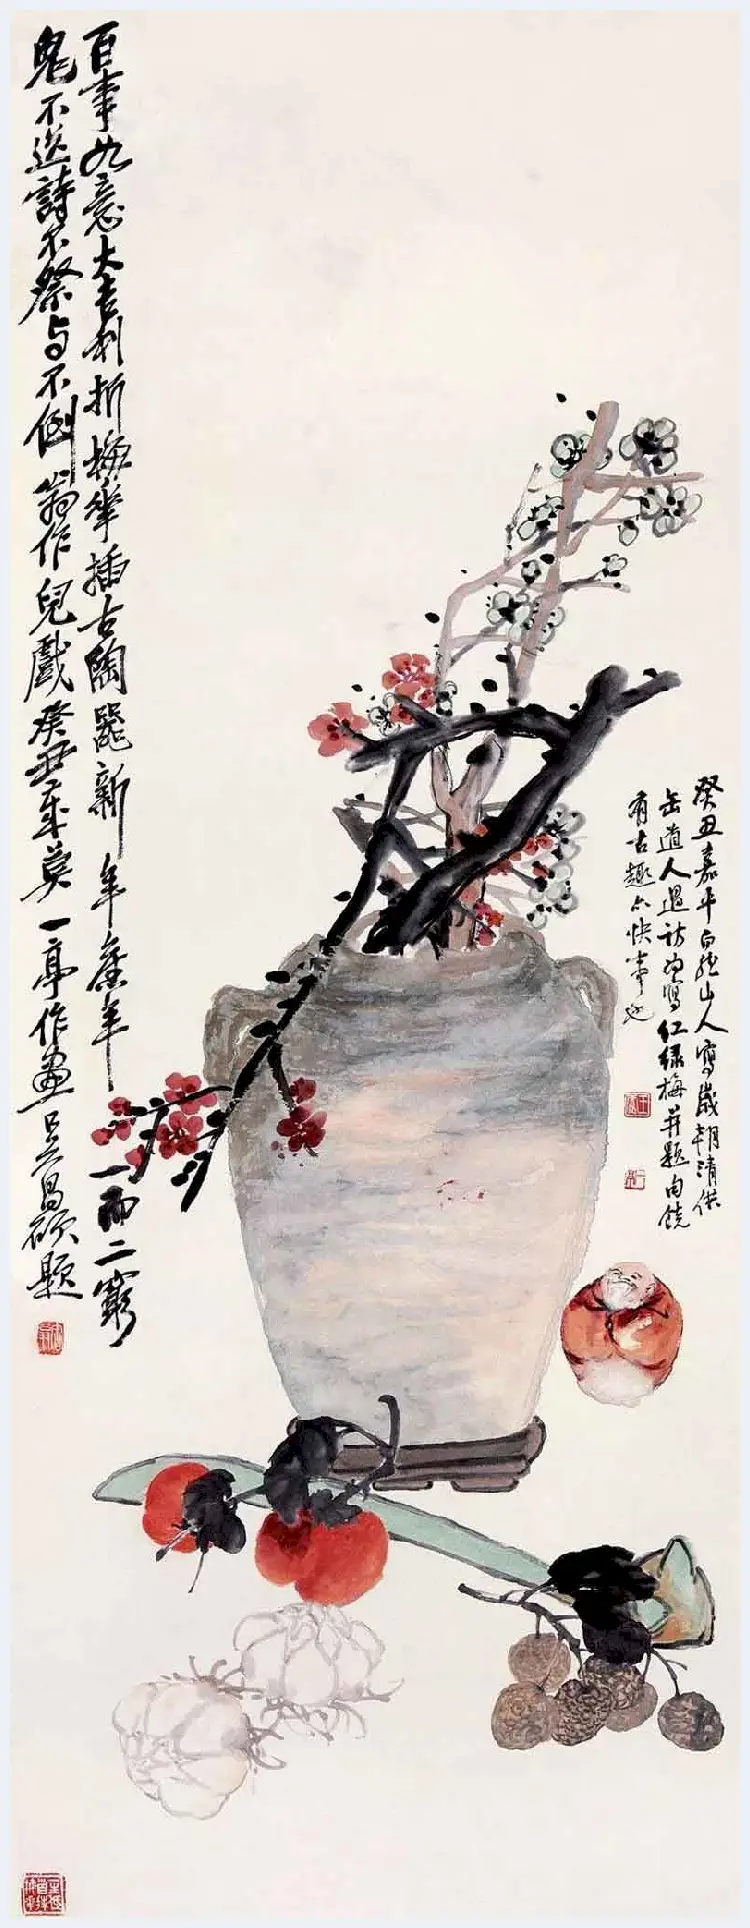 百事如意大吉利折梅華插古陶器新年舊年一而二窮
鬼不送詩不祭與不倒翁作兒戲癸丑年莫一亭作畫吳昌碩題
癸丑嘉平白龍山人寫歲朝清供
缶道人過訪為寫紅綠梅并題句饒
有古趣亦快事也